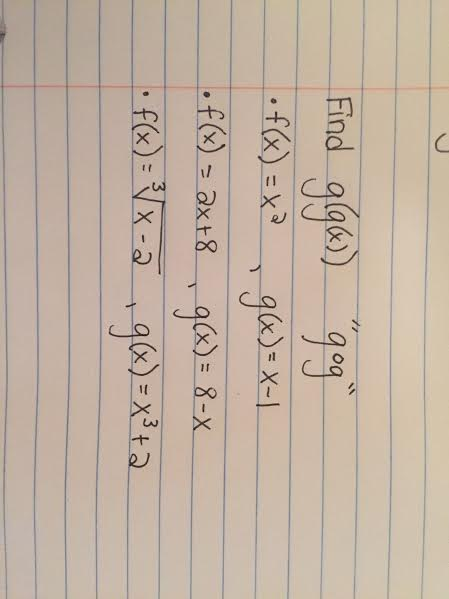 Find g(g(x)) "gog"
• f(x) = x², g(x) = x-1
• f(x) = 2x+8, g(x) = 8-x
• f(x) = ∛(x-2), g(x) = x³+2